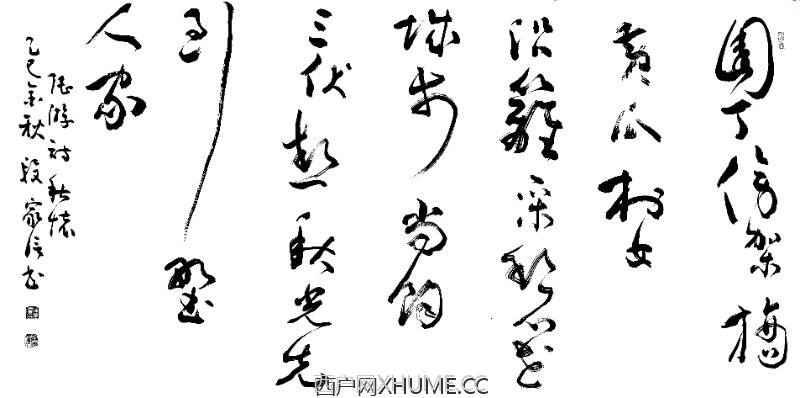 園丁傍架摘
黄瓜村女
沿籬采碧花
城市尚餘
三伏热秋光先
到野
人家
陆游诗秋怀
乙巳金秋段家信书
西户网XHUME.CC